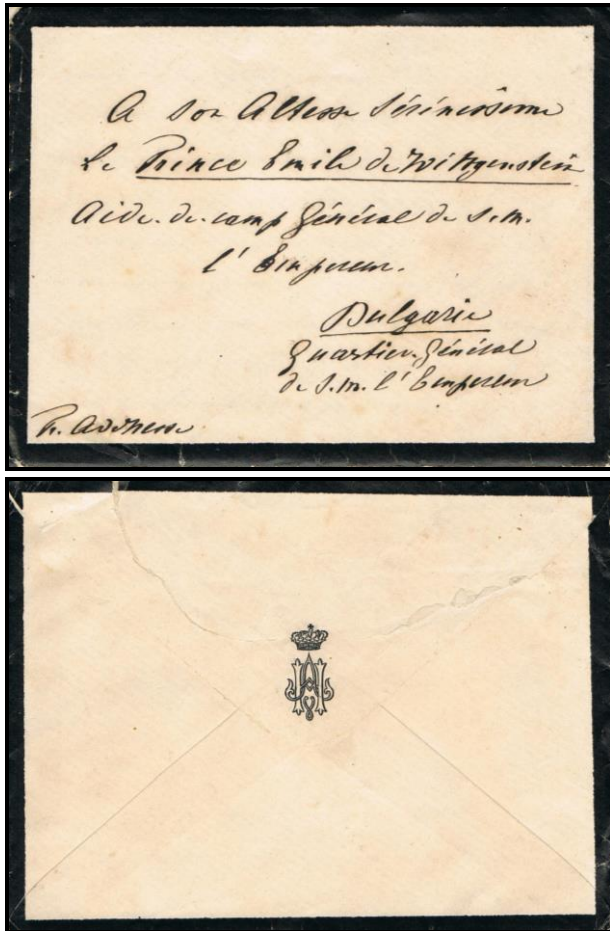 A son Altesse Sérénissime
Le Prince Emile de Wittgenstein
Aide. de. camp Général de S. M.
l' Empereur.
Bulgarie
Quartier. Général
de S. M. l' Empereur